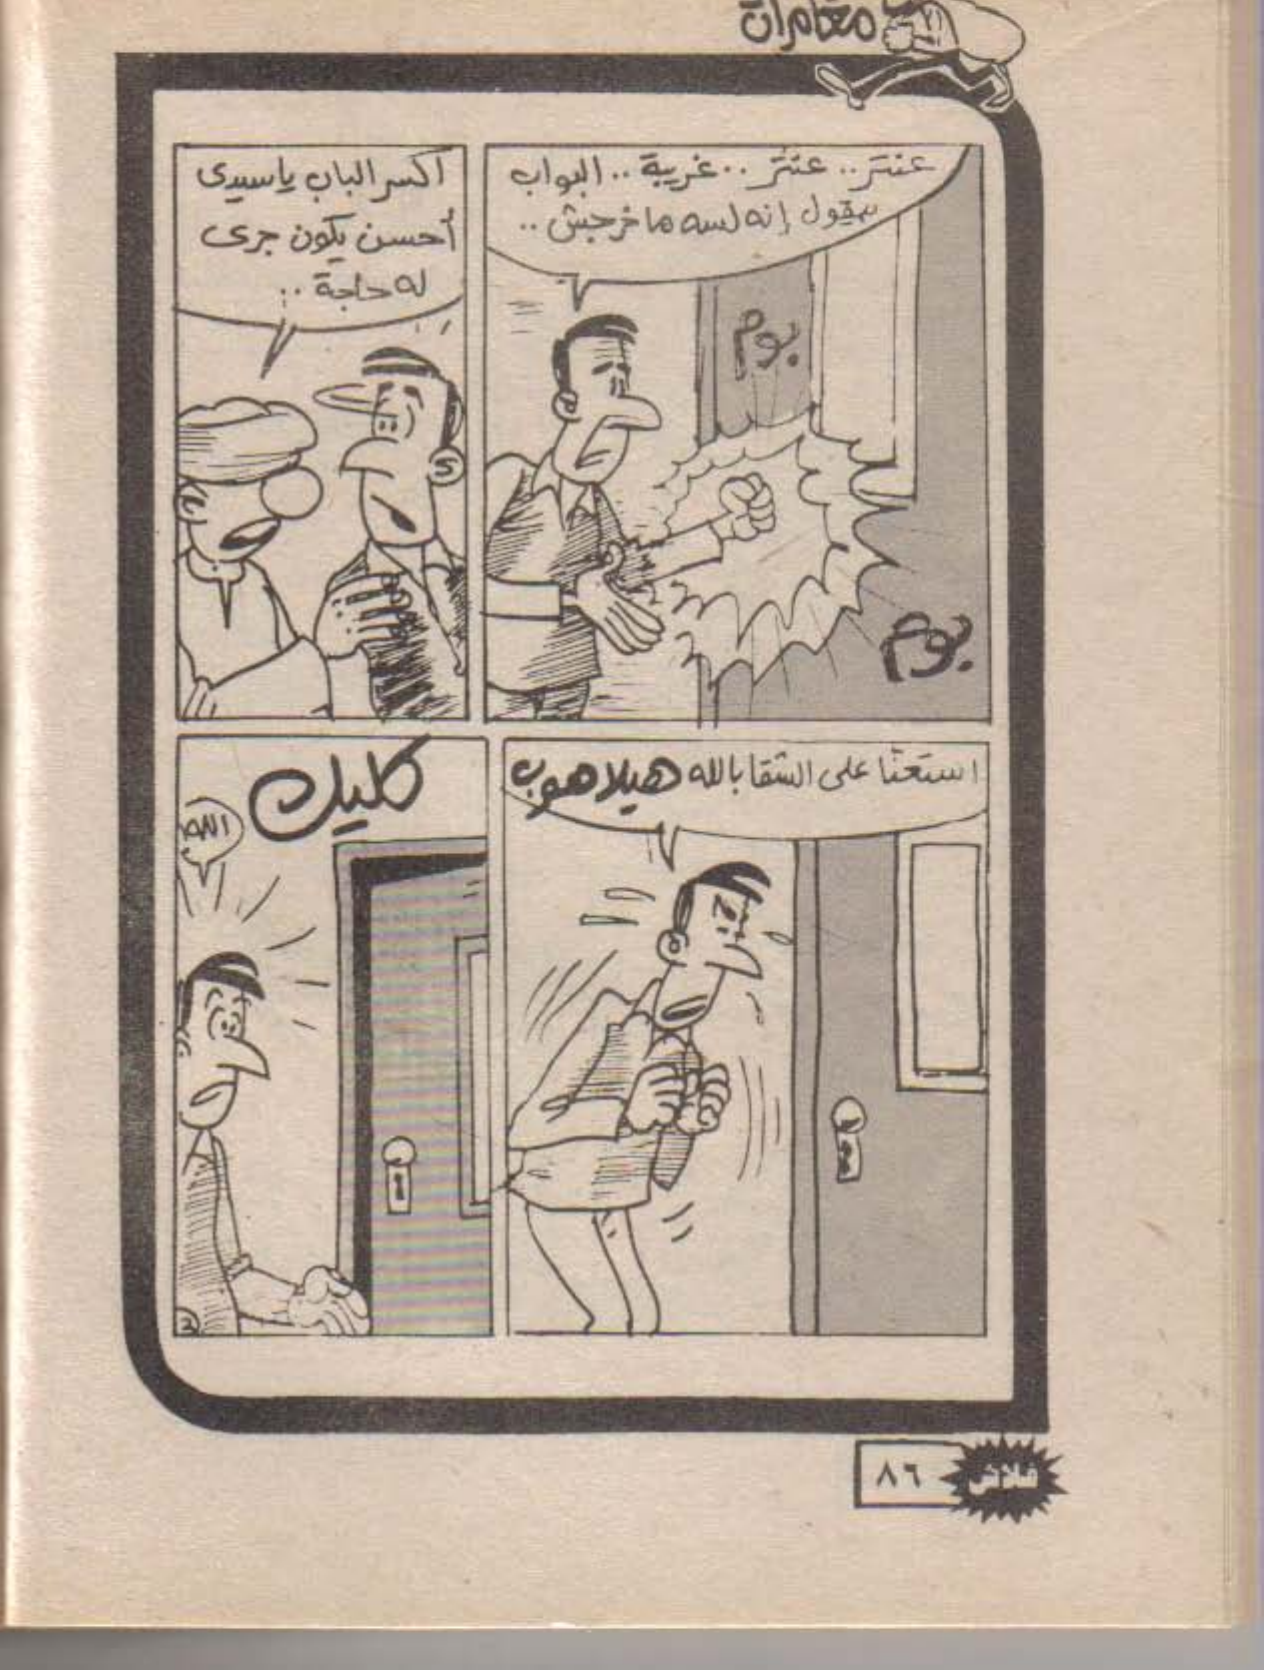 مغامرات
عنتر.. عنتر.. غريبة.. البواب
بيقول إنه لسه ما خرجش..
بوم
بوم
اكسر الباب يا سيدى
أحسن يكون جرى
له حاجة..
استعنا على الشقا بالله هيلا هوب
كليك
الله
فلاش
٨٦